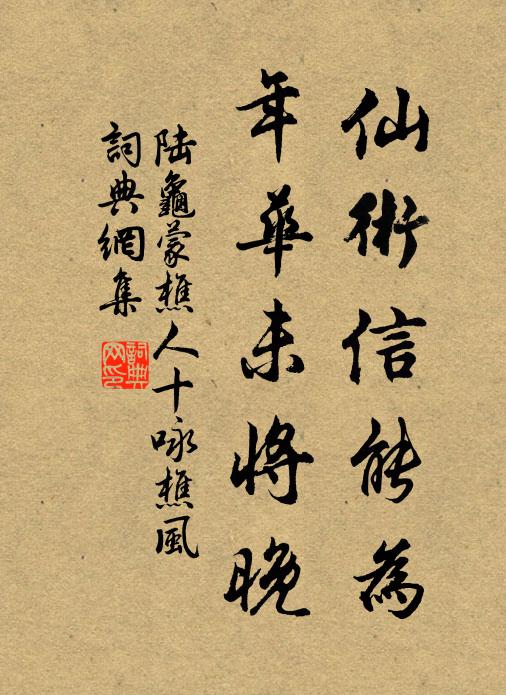 仙術信能為
年華未將晚
陆龜蒙樵人十咏樵風
詞典網集
詞典网印